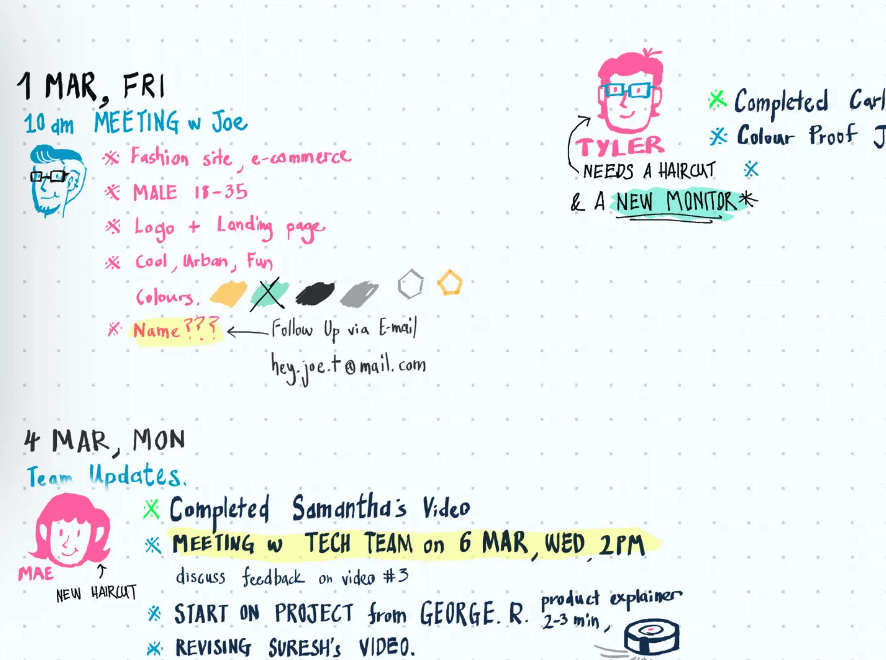 1 MAR, FRI
10 am MEETING w Joe
Fashion site, e-commerce
MALE 18-35
Logo + Landing page
Cool, Urban, Fun
Colours.
Name??? ← Follow Up via E-mail
hey.joe.t@mail.com
TYLER
NEEDS A HAIRCUT
& A NEW MONITOR*
Completed Carl
Colour Proof J
4 MAR, MON
Team Updates.
MAE
NEW HAIRCUT
Completed Samantha's Video
MEETING w TECH TEAM on 6 MAR, WED, 2PM
discuss feedback on video #3
START ON PROJECT from GEORGE. R. product explainer
2-3 min,
REVISING SURESH's VIDEO.